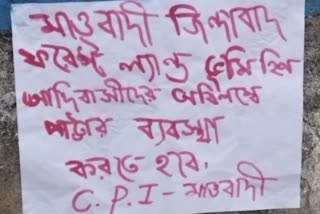 মাওবাদী জিন্দাবাদ
ফরেষ্ট ল্যান্ড ভূমিহীন
আদিবাসীদের অবিলম্বে
পাট্টার ব্যবস্থা
করতে হবে.
C.P.I - মাওবাদী